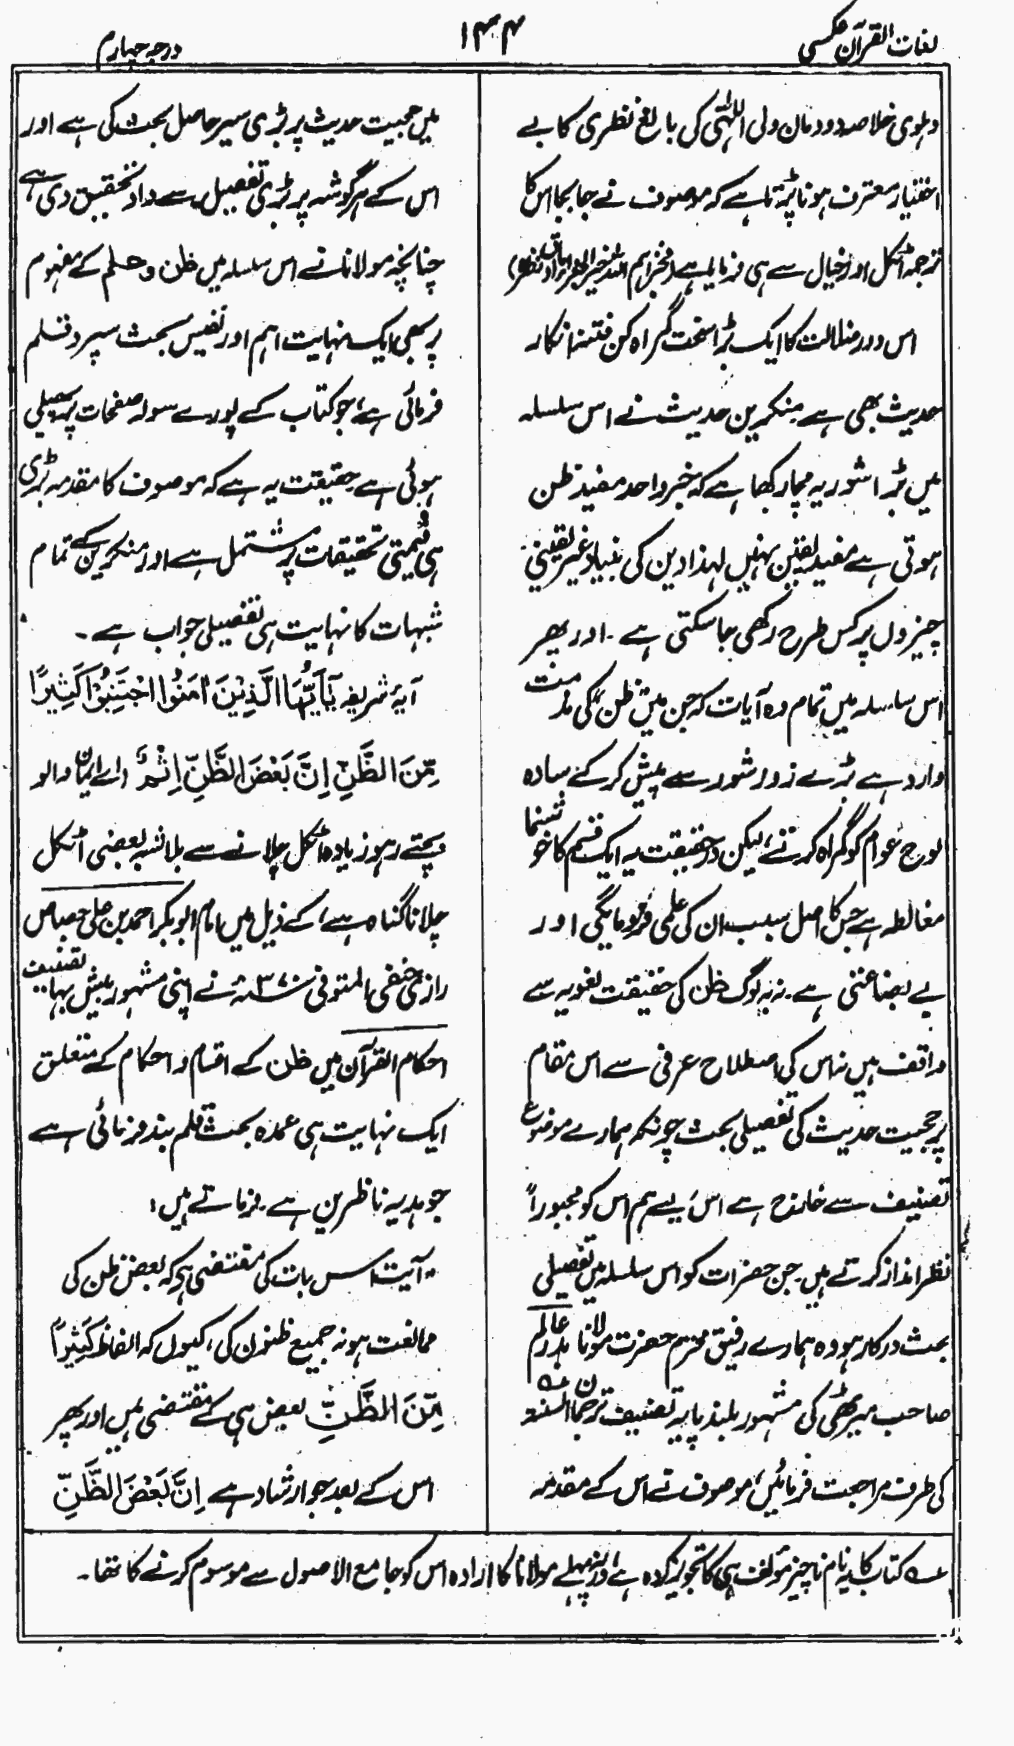 لغات القرآن عکسی
۱۴۴
درجہ چہارم
دہلوی خلاصہ دودمان ولی اللہی کی بالغ نظری کا بے
اختیار معترف ہونا پڑتا ہے کہ موصوف نے جابجا اس کا
ترجمہ اٹکل اور خیال سے ہی فرمایا ہے
اس دور ضلالت کا ایک بڑا سخت گمراہ کن فتنہ انکار
حدیث بھی ہے منکرین حدیث نے اس سلسلہ
میں بڑا شور یہ مچا رکھا ہے کہ خبر واحد مفید ظن
ہوتی ہے مفید یقین نہیں لہذا دین کی بنیاد غیر یقینی
چیزوں پر کس طرح رکھی جا سکتی ہے۔ اور پھر
اس سلسلہ میں تمام وہ آیات کہ جن میں ظن کی مذمت
وارد ہے بڑے زور شور سے پیش کر کے سادہ
لوح عوام کو گمراہ کرتے، لیکن درحقیقت یہ ایک قسم کا خوشنما
مغالطہ ہے جس کا اصل سبب ان کی علمی فرومایگی اور
بے بضاعتی ہے۔ نہ یہ لوگ ظن کی حقیقت لغویہ سے
واقف ہیں نہ اس کی اصطلاح عرفی سے اس مقام
پر حجیت حدیث کی تفصیلی بحث چونکہ ہمارے موضوع
تصنیف سے خارج ہے اس لیے ہم اس کو مجبوراً
نظر انداز کرتے ہیں جن حضرات کو اس سلسلہ میں تفصیلی
بحث درکار ہو وہ ہمارے رفیق محترم حضرت مولانا بدر عالم
صاحب میرٹھی کی مشہور بلند پایہ تصنیف ترجمان السنہ عہ
کی طرف مراجعت فرمائیں، موصوف نے اس کے مقدمہ
میں حجیت حدیث پر بڑی سیر حاصل بحث کی ہے اور
اس کے ہر گوشہ پر بڑی تفصیل سے داد تحقیق دی ہے
چنانچہ مولانا نے اس سلسلہ میں ظن و علم کے مفہوم
پر بھی ایک نہایت اہم اور نفیس بحث سپرد قلم
فرمائی ہے، جو کتاب کے پورے سولہ صفحات پر پھیلی
ہوئی ہے حقیقت یہ ہے کہ موصوف کا مقدمہ بڑی
ہی قیمتی تحقیقات پر مشتمل ہے اور منکرین کے تمام
شبہات کا نہایت ہی تفصیلی جواب ہے۔
آیۂ شریفہ یٰٓاَیُّهَا الَّذِیْنَ اٰمَنُوا اجْتَنِبُوْا کَثِیْرًا
مِّنَ الظَّنِّ اِنَّ بَعْضَ الظَّنِّ اِثْمٌ (اے ایمان والو
بچتے رہو زیادہ اٹکل چلانے سے بلاشبہ بعضی اٹکل
چلانا گناہ ہے) کے ذیل میں امام ابو بکر احمد بن علی جصاص
رازی حنفی المتوفی ۳۷۰ھ نے اپنی مشہور بیش بہا تصنیف
احکام القرآن میں ظن کے اقسام و احکام کے متعلق
ایک نہایت ہی عمدہ بحث قلم بند فرمائی ہے
جو ہدیہ ناظرین ہے۔ فرماتے ہیں:
"آیت اس بات کی مقتضی ہے کہ بعض ظن کی
ممانعت ہو نہ جمیع ظنون کی، کیوں کہ الفاظ کَثِیْرًا
مِّنَ الظَّنِّ بعض ہی کے مقتضی ہیں اور پھر
اس کے بعد جو ارشاد ہے اِنَّ بَعْضَ الظَّنِّ
عہ کتاب کا یہ نام ناچیز مؤلف ہی کا تجویز کردہ ہے ورنہ پہلے مولانا کا ارادہ اس کو جامع الاصول سے موسوم کرنے کا تھا۔